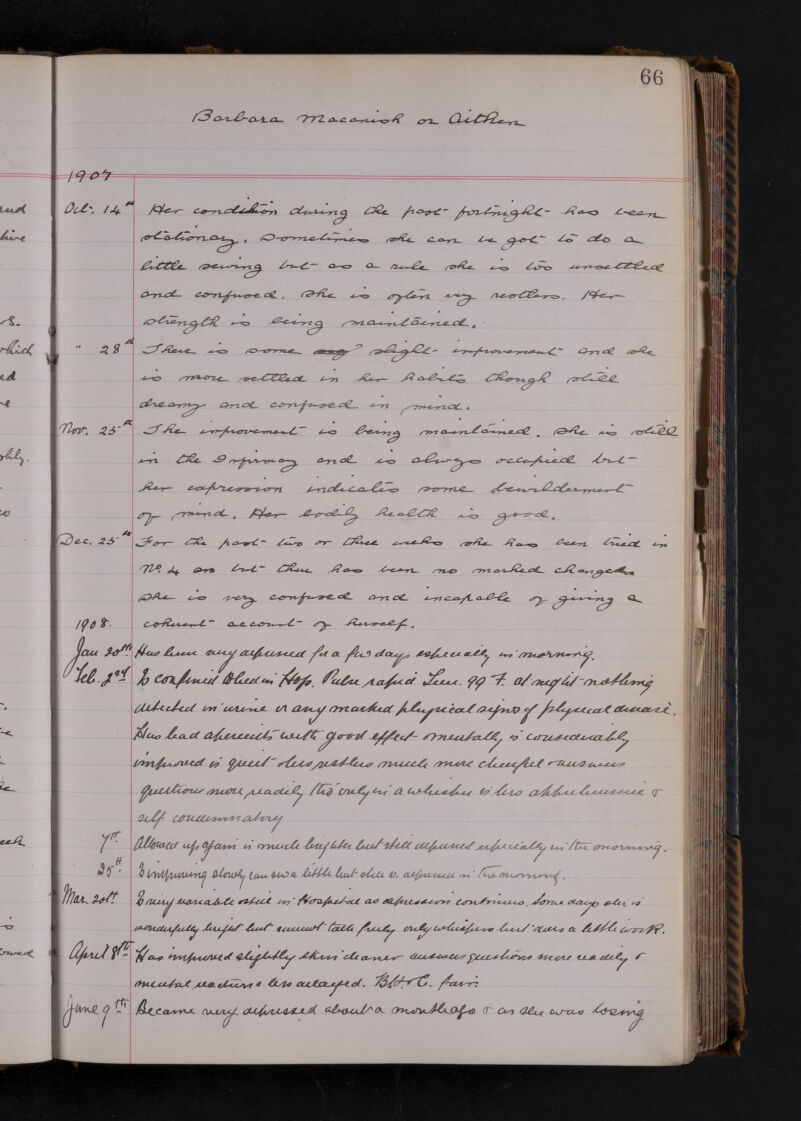 66
Barbara Macanish or Aitken
1907
Oct. 14th Her condition during the past fortnight has been
stationary. Sometimes she can be got to do a
little sewing but as a rule she is too unsettled
and confused. She is often very restless. Her
strength is being maintained.
" 28th There is some slight improvement and she
is more settled in her habits though still
dreamy and confused in mind.
Nov. 25th The improvement is being maintained. She is still
in the Infirmary and is always occupied but
her expression indicates some bewilderment
of mind. Her bodily health is good.
Dec. 25th For the past two or three weeks she has been tried in
No. 4 but there has been no marked change
She is very confused and incapable of giving a
1908. coherent account of herself.
Jan 20th Has been very depressed for a few days especially in morning.
Feb. 2nd Is confined to bed in Hosp. Pulse rapid Tem. 99 F. at night nothing
detected in urine or any marked physical signs of physical disease.
Has had aperients with good effect mentally is considerably
improved is quiet & less restless much more cheerful & answers
questions more readily tho' only in a whisper is less apprehensive &
self condemnatory
7th Allowed up again is much brighter but still depressed especially in the morning.
25th Is improving slowly can sew a little but still v. depressed in the morning.
Mar. 20th Is very variable & still in Hospital as depression continues. Some days she is
wonderfully bright but cannot talk freely only whispers but does a little work.
April 8th Has improved slightly skin cleaner answers questions more readily &
mental reactions less delayed. B.H. & C. fair.
June 9th Became very depressed about a month ago & as she was losing
and
hive
which
ed